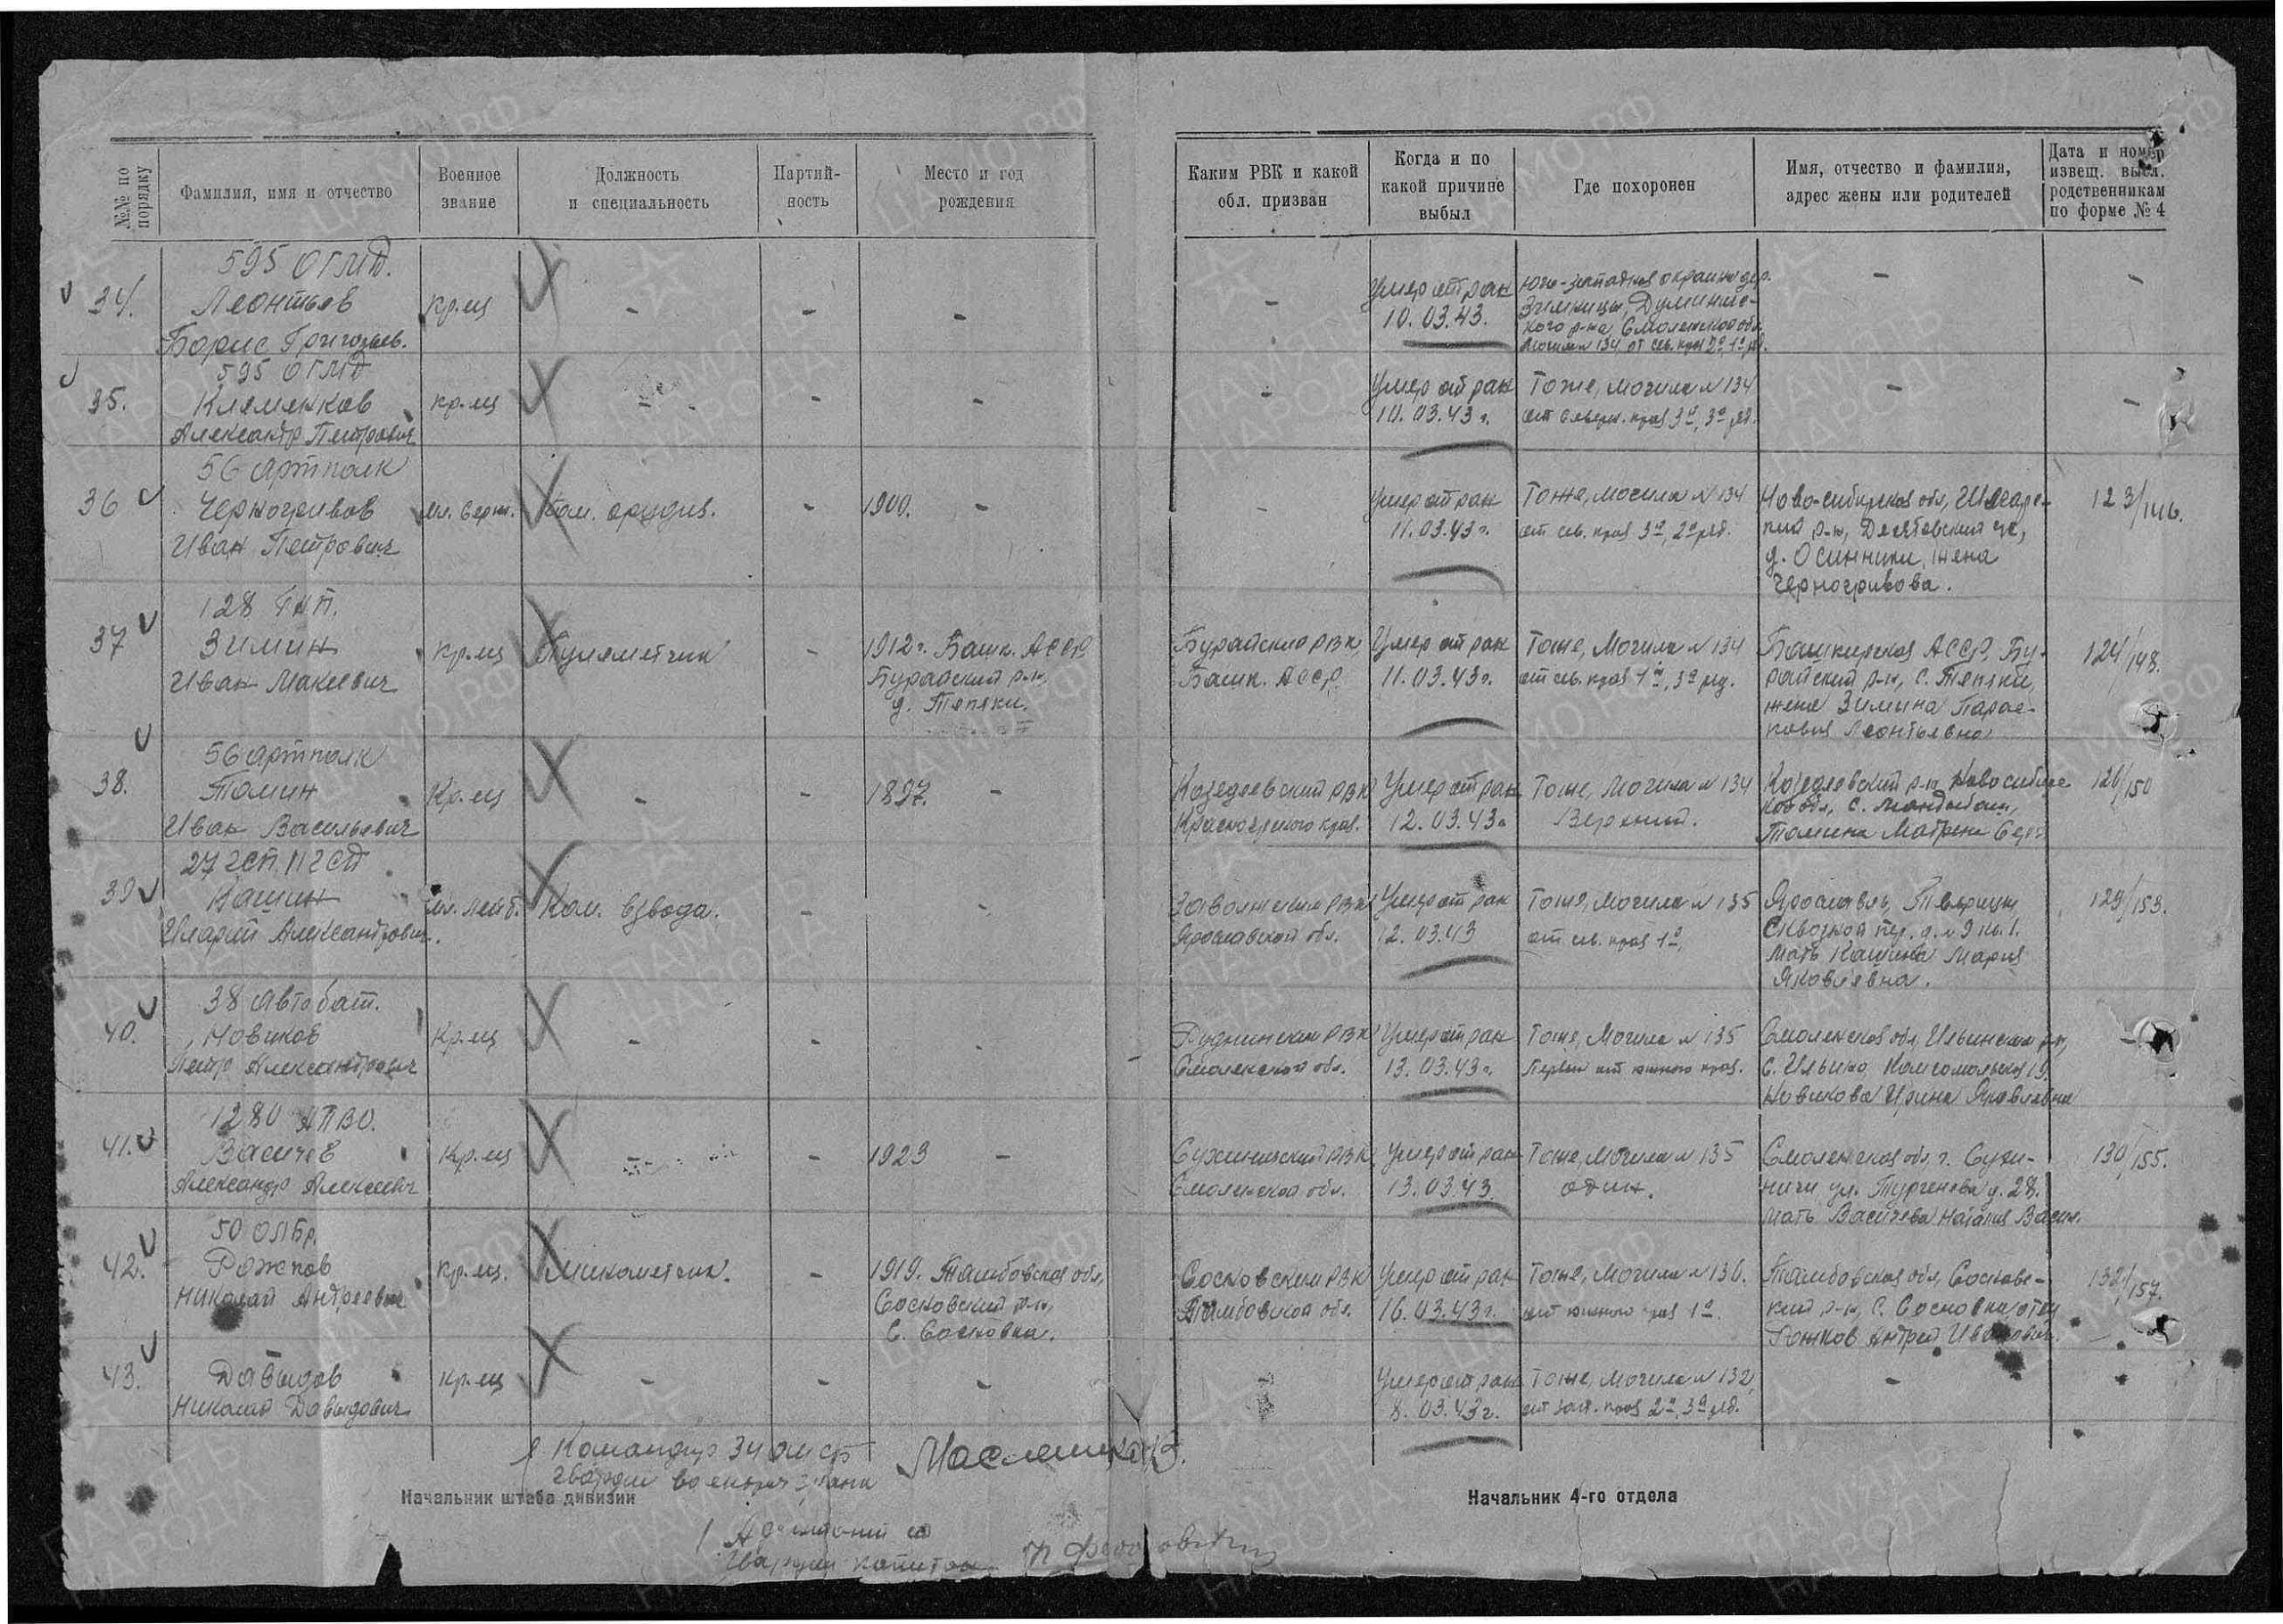 №№ по порядку
Фамилия, имя и отчество
Военное звание
Должность и специальность
Партий-ность
Место и год рождения
Каким РВК и какой обл. призван
Когда и по какой причине выбыл
Где похоронен
Имя, отчество и фамилия, адрес жены или родителей
Дата и номер извещ. высл. родственникам по форме № 4
595 ОГМД.
34. Леонтьев кр-ец - - - - Умер от ран Юго-западная окраина дер.
Борис Григорьев. 10.03.43. Зимницы, Думинич-
кого р-на Смоленской обл.
Могила 134 от сев. края 2й 1й ряд.
595 ОГМД
35. Клеменков кр-ец - - - - Умер от ран Тоже, могила №134 - -
Александр Петрович 10.03.43г. от северн. края 3й, 3й ряд.
56 артполк
36 Черногривов мл. серж. Ком. орудия. - 1900. - - Умер от ран Тоже, могила №134 Ново-сибирская обл,
Иван Петрович 11.03.43г. от сев. края 3й, 2й ряд. р-н,
д. Осинники, жена
Черногривова.
123/146.
128 ГАП.
37 Зимин кр-ец Пулеметчик - 1912г. Башк. АССР Бурайский РВК Умер от ран Тоже, Могила №134 Башкирская АССР, Бу-
Иван Макеевич Бурайский р-н, Башк. АССР 11.03.43г. от сев. края 1й, 3й ряд. райский р-н, с. Тепяки,
д. Тепяки. жена Зимина Парас-
ковия Леонтьевна
124/148.
56 артполк
38. Томин Кр-ец - - 1897. - РВК Умер от ран Тоже, Могила №134 р-н Новосибирс
Иван Васильевич Красноярского края. 12.03.43г Верхний. кой обл, с.
Томина Матрена Серг
126/150
27 гсп 11 гсд
39 Кашин мл. лейт. Ком. взвода. - - Заволжский РВК Умер от ран Тоже, могила №135 Ярославль, Тверицы,
Иларий Александрович. Ярославской обл. 12.03.43 от сев. края 1й, Сквозной пер. д.№9 кв.1.
Мать Кашина Мария
Яковлевна.
129/153.
38 Автобат.
40. Новиков Кр-ец - - - Руднинский РВК Умер от ран Тоже, Могила №135 Смоленская обл, Ильинский р-н,
Петр Александрович Смоленской обл. 13.03.43г. Первый от южного края. с. Ильино, Комсомольская 19.
Новикова Ирина Яковлевна
-
1280 АПВО.
41. Васичев Кр-ец - - 1923 - Сухиничский РВК Умер от ран Тоже, Могила №135 Смоленская обл, г. Сухи-
Александр Алексеевич Смоленской обл. 13.03.43. один. ничи, ул. Тургенева д.28.
Мать Васичева Наталия Васил.
130/155.
50 ОЛБр.
42. Рожков Кр-ец. Минометчик. - 1919. Тамбовская обл, Сосновским РВК Умер от ран Тоже, Могила №136. Тамбовская обл, Сосновс-
Николай Андреевич Сосновский р-н, Тамбовской обл. 16.03.43г. от южного края 1й. кий р-н, с. Сосновка отец
с. Сосновка. Рожков Андрей Иванович.
132/157.
43. Давыдов Кр-ец - - - Умер от ран Тоже, Могила №132, -
Николай Давыдович 8.03.43г. от зап. края 2й, 3й ряд.
Командир 34 омсб
гвардии военврач 3 ранга Масленников.
Начальник штаба дивизии
Начальник 4-го отдела
гвардии капитан